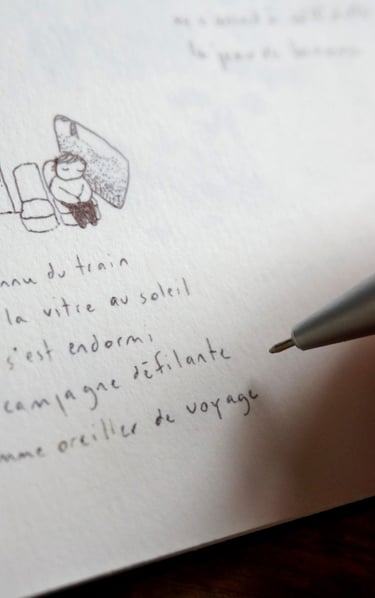 nnu du train
la vitre au soleil
s'est endormi
campagne défilante
mme oreiller de voyage